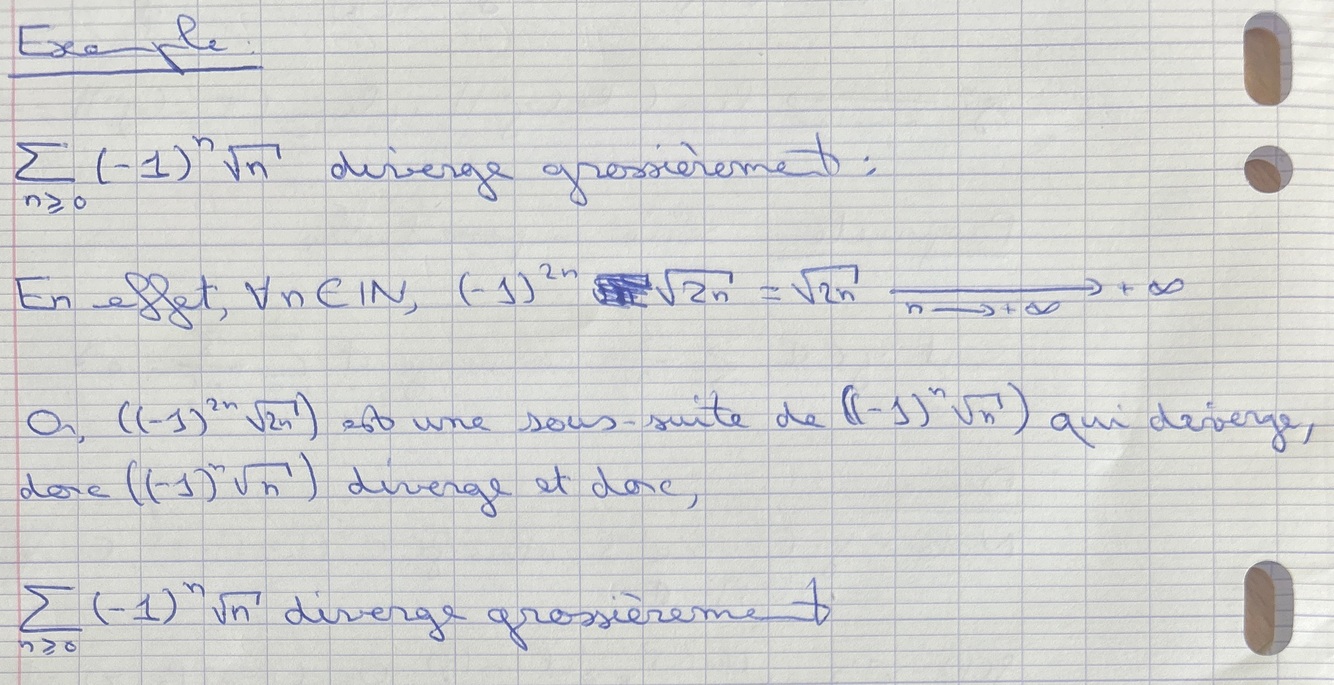 Exemple :
∑_{n≥0} (-1)^n √n diverge grossièrement :
En effet, ∀n∈ℕ, (-1)^{2n} √2n = √2n ⟶_{n→+∞} +∞
Or, ((-1)^{2n} √2n) est une sous-suite de ((-1)^n √n) qui diverge,
donc ((-1)^n √n) diverge et donc,
∑_{n≥0} (-1)^n √n diverge grossièrement